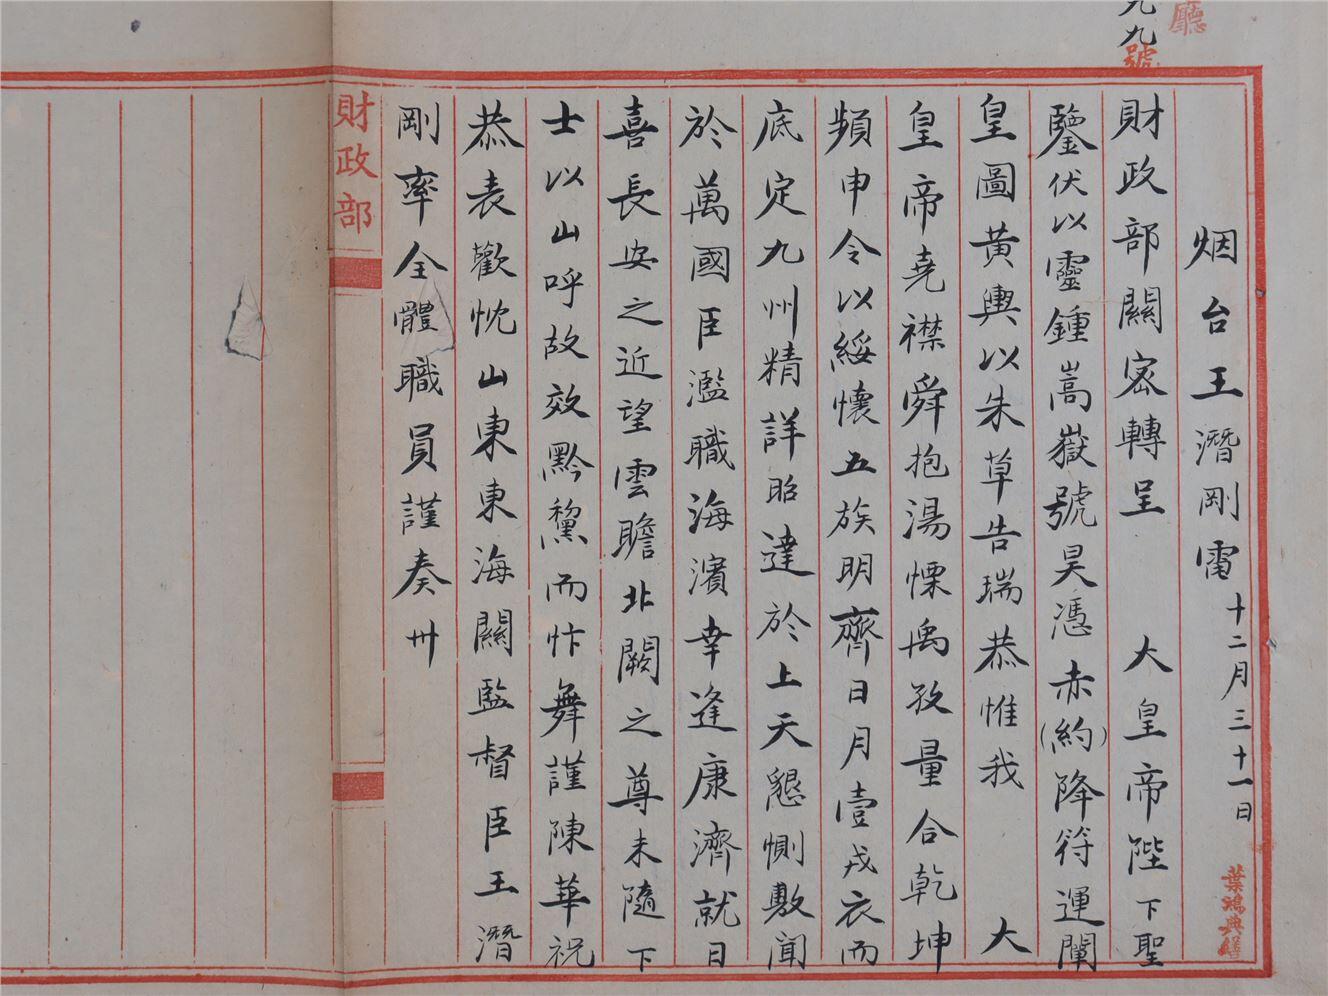 九九號
廳
烟台王潛剛電十二月三十一日
葉鴻典繕
財政部關密轉呈 大皇帝陛下聖
鑒伏以靈鍾嵩嶽號昊憑赤(約)降符運闡
皇圖黃輿以朱草告瑞恭惟我 大
皇帝堯襟舜抱湯慄禹孜量合乾坤
頻申令以綏懷五族明齊日月壹戎衣而
底定九州精詳昭達於上天懇惻敷聞
於萬國臣濫職海濱幸逢康濟就日
喜長安之近望雲瞻北闕之尊未隨下
士以山呼故效黔黎而忭舞謹陳華祝
恭表歡忱山東東海關監督臣王潛
剛率全體職員謹奏卅
財政部